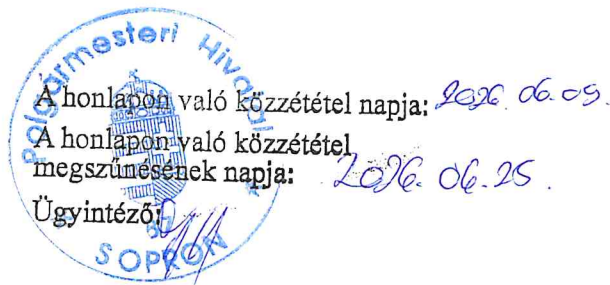 Polgármesteri Hivatal
A honlapon való közzététel napja: 2026. 06. 09.
A honlapon való közzététel
megszűnésének napja: 2026. 06. 25.
Ügyintéző:
SOPRON